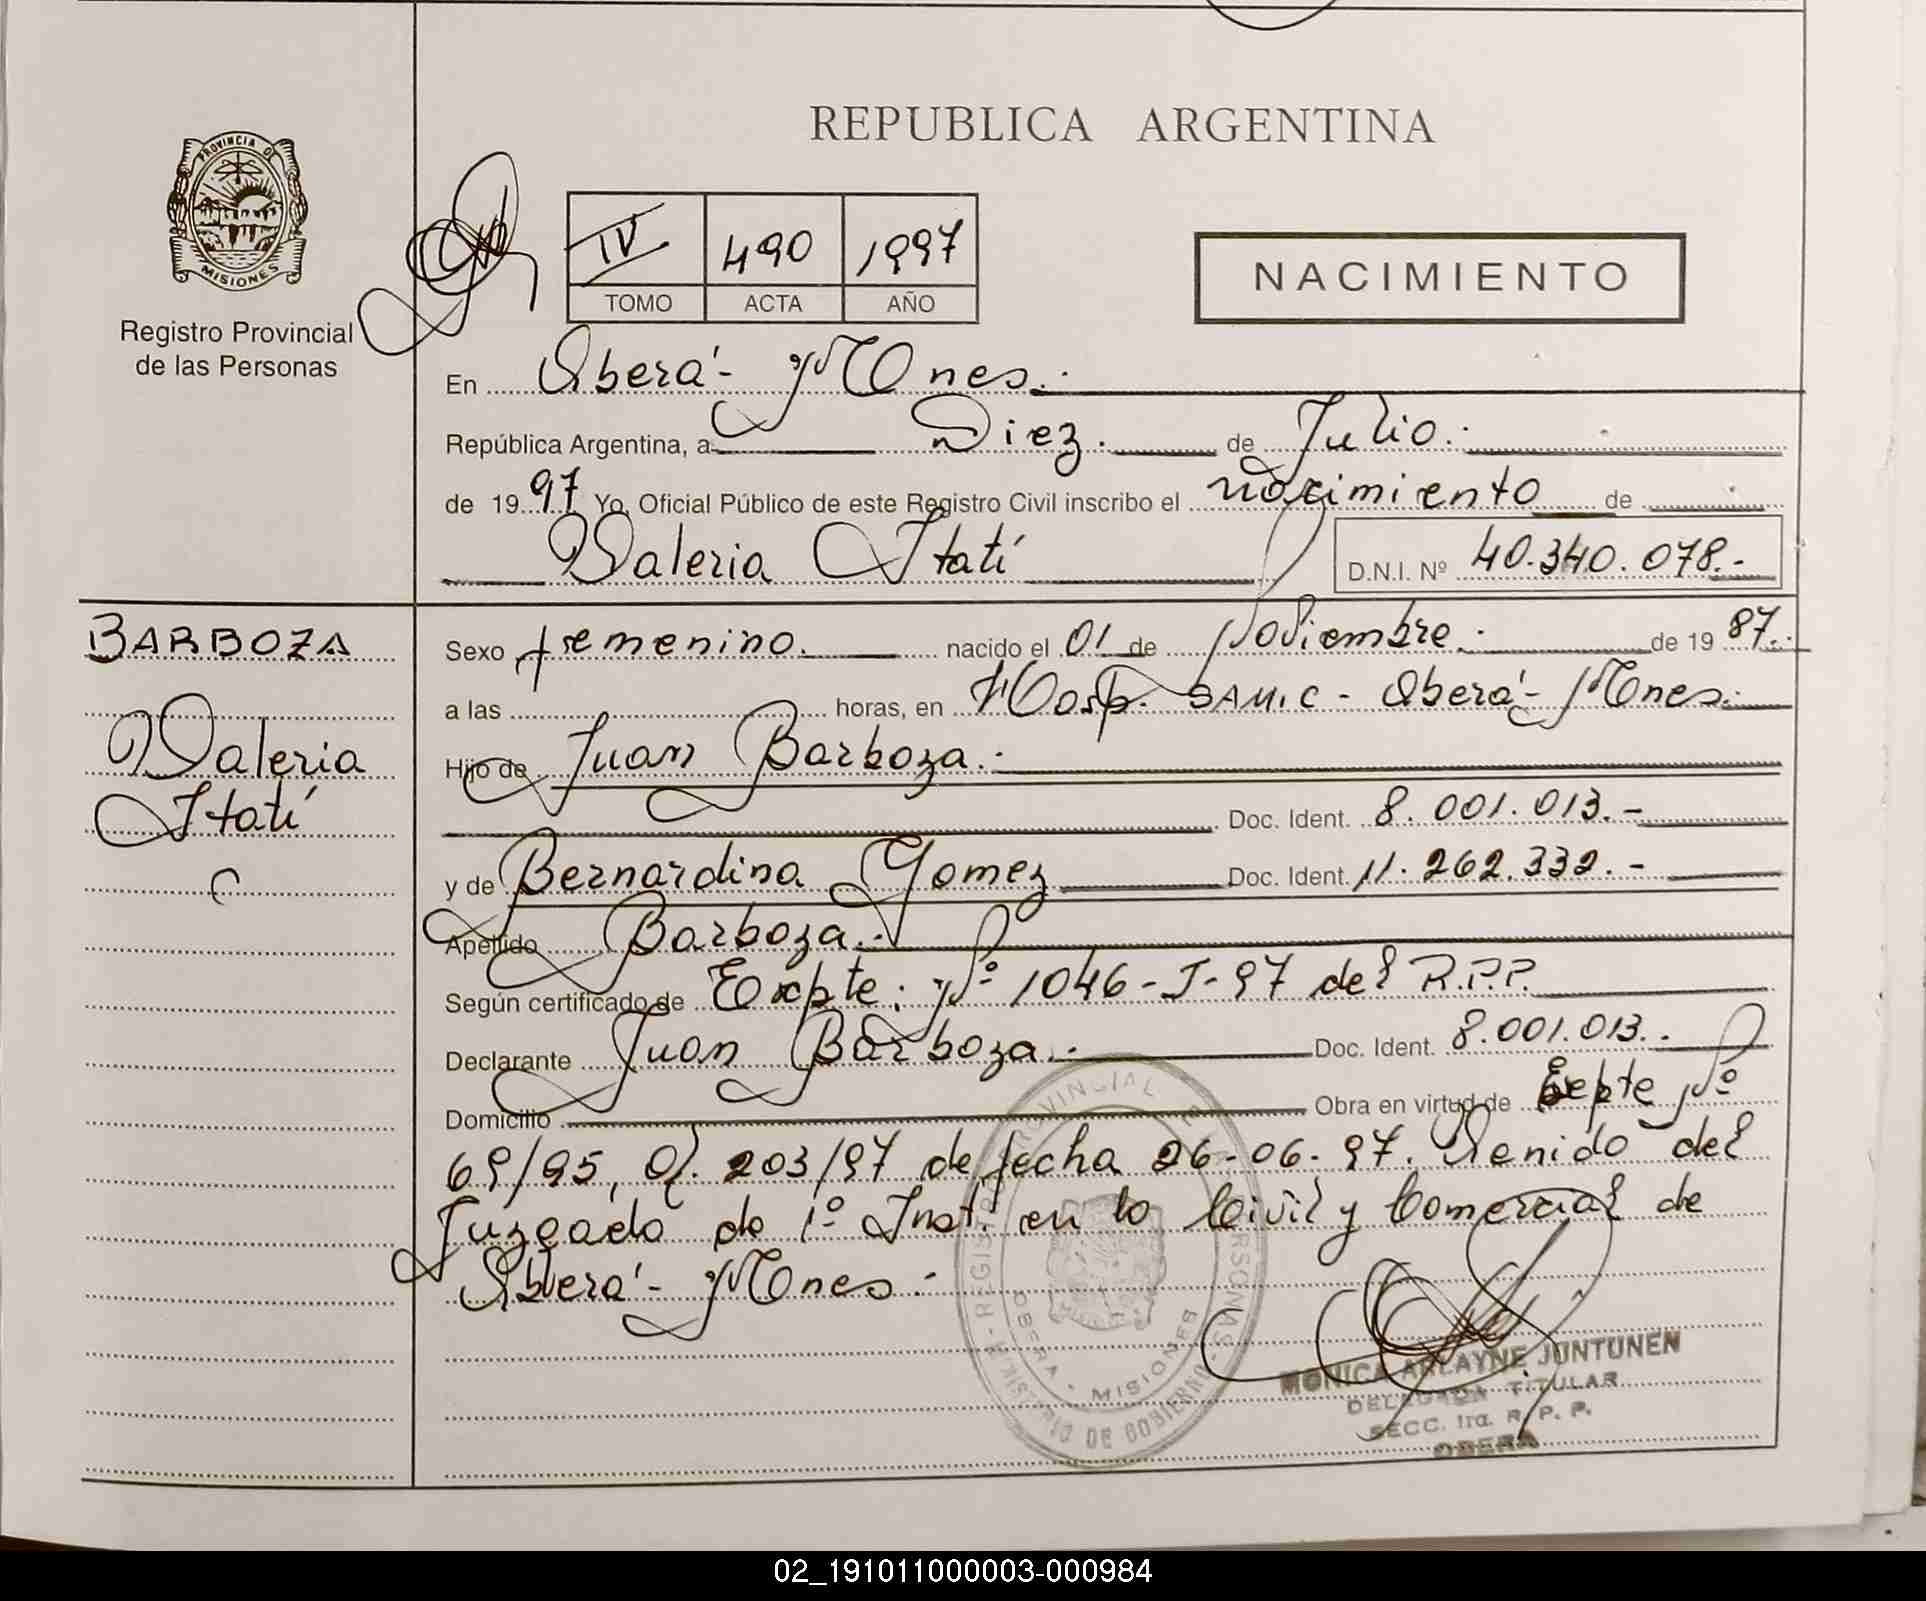 REPUBLICA ARGENTINA
PROVINCIA DE
MISIONES
Registro Provincial
de las Personas
IV 490 1997
TOMO ACTA AÑO
NACIMIENTO
En Oberá - Mnes.
República Argentina, a Diez. de Julio.
de 1997 Yo, Oficial Público de este Registro Civil inscribo el nacimiento de
Valeria Itatí
D.N.I. Nº 40.340.078.-
BARBOZA
Valeria
Itatí
Sexo femenino. nacido el 01 de Noviembre. de 1987.
a las horas, en Hosp. SAMIC - Oberá - Mnes.
Hijo de Juan Barboza.
Doc. Ident. 8.001.013.-
y de Bernardina Gomez Doc. Ident. 11.262.332.-
Apellido Barboza.
Según certificado de Expte. Nº 1046-J-97 del R.P.P.
Declarante Juan Barboza. Doc. Ident. 8.001.013.
Domicilio Obra en virtud de Expte Nº
69/95, Of. 203/97 de fecha 26-06-97. Venido del
Juzgado de 1º Inst. en lo Civil y Comercial de
Oberá - Mnes.
REGISTRO PROVINCIAL DE LAS PERSONAS
MINISTERIO DE GOBIERNO
OBERA - MISIONES
MONICA ARLAYNE JUNTUNEN
DELEGADA TITULAR
SECC. 1ra. R. P. P.
OBERA
02_191011000003-000984